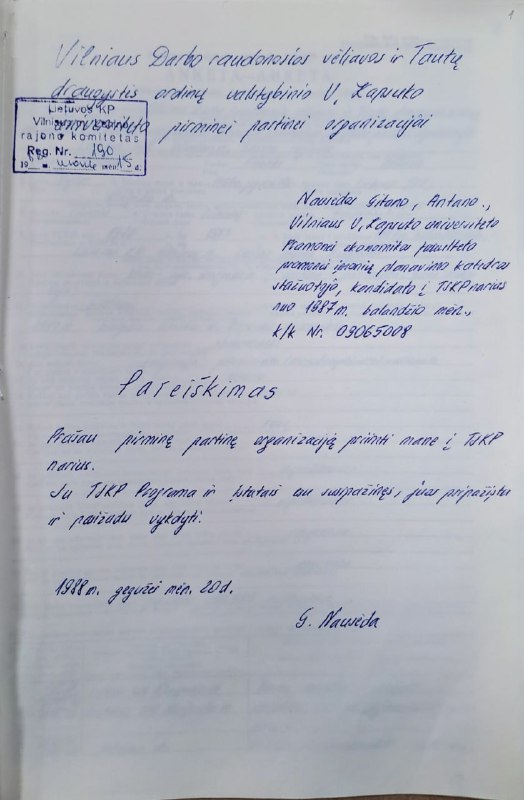 1
Vilniaus Darbo raudonosios vėliavos ir Tautų
draugystės ordinų valstybinio V. Kapsuko
universiteto pirminei partinei organizacijai
Lietuvos KP
Vilniaus m.
rajono komitetas
Reg. Nr. 190
19 m. mėn. 15 d.
Nausėdos Gitano, Antano.,
Vilniaus V. Kapsuko universiteto
Pramonės ekonomikos fakulteto
pramonės įmonių planavimo katedros
stažuotojo, kandidato į TSKP narius
nuo 1987 m. balandžio mėn.,
k/k Nr. 09065008
Pareiškimas
Prašau pirminę partinę organizaciją priimti mane į TSKP
narius.
Su TSKP Programa ir įstatais esu susipažinęs, juos pripažįstu
ir pasižadu vykdyti.
1988 m. gegužės mėn. 20 d.
G. Nausėda